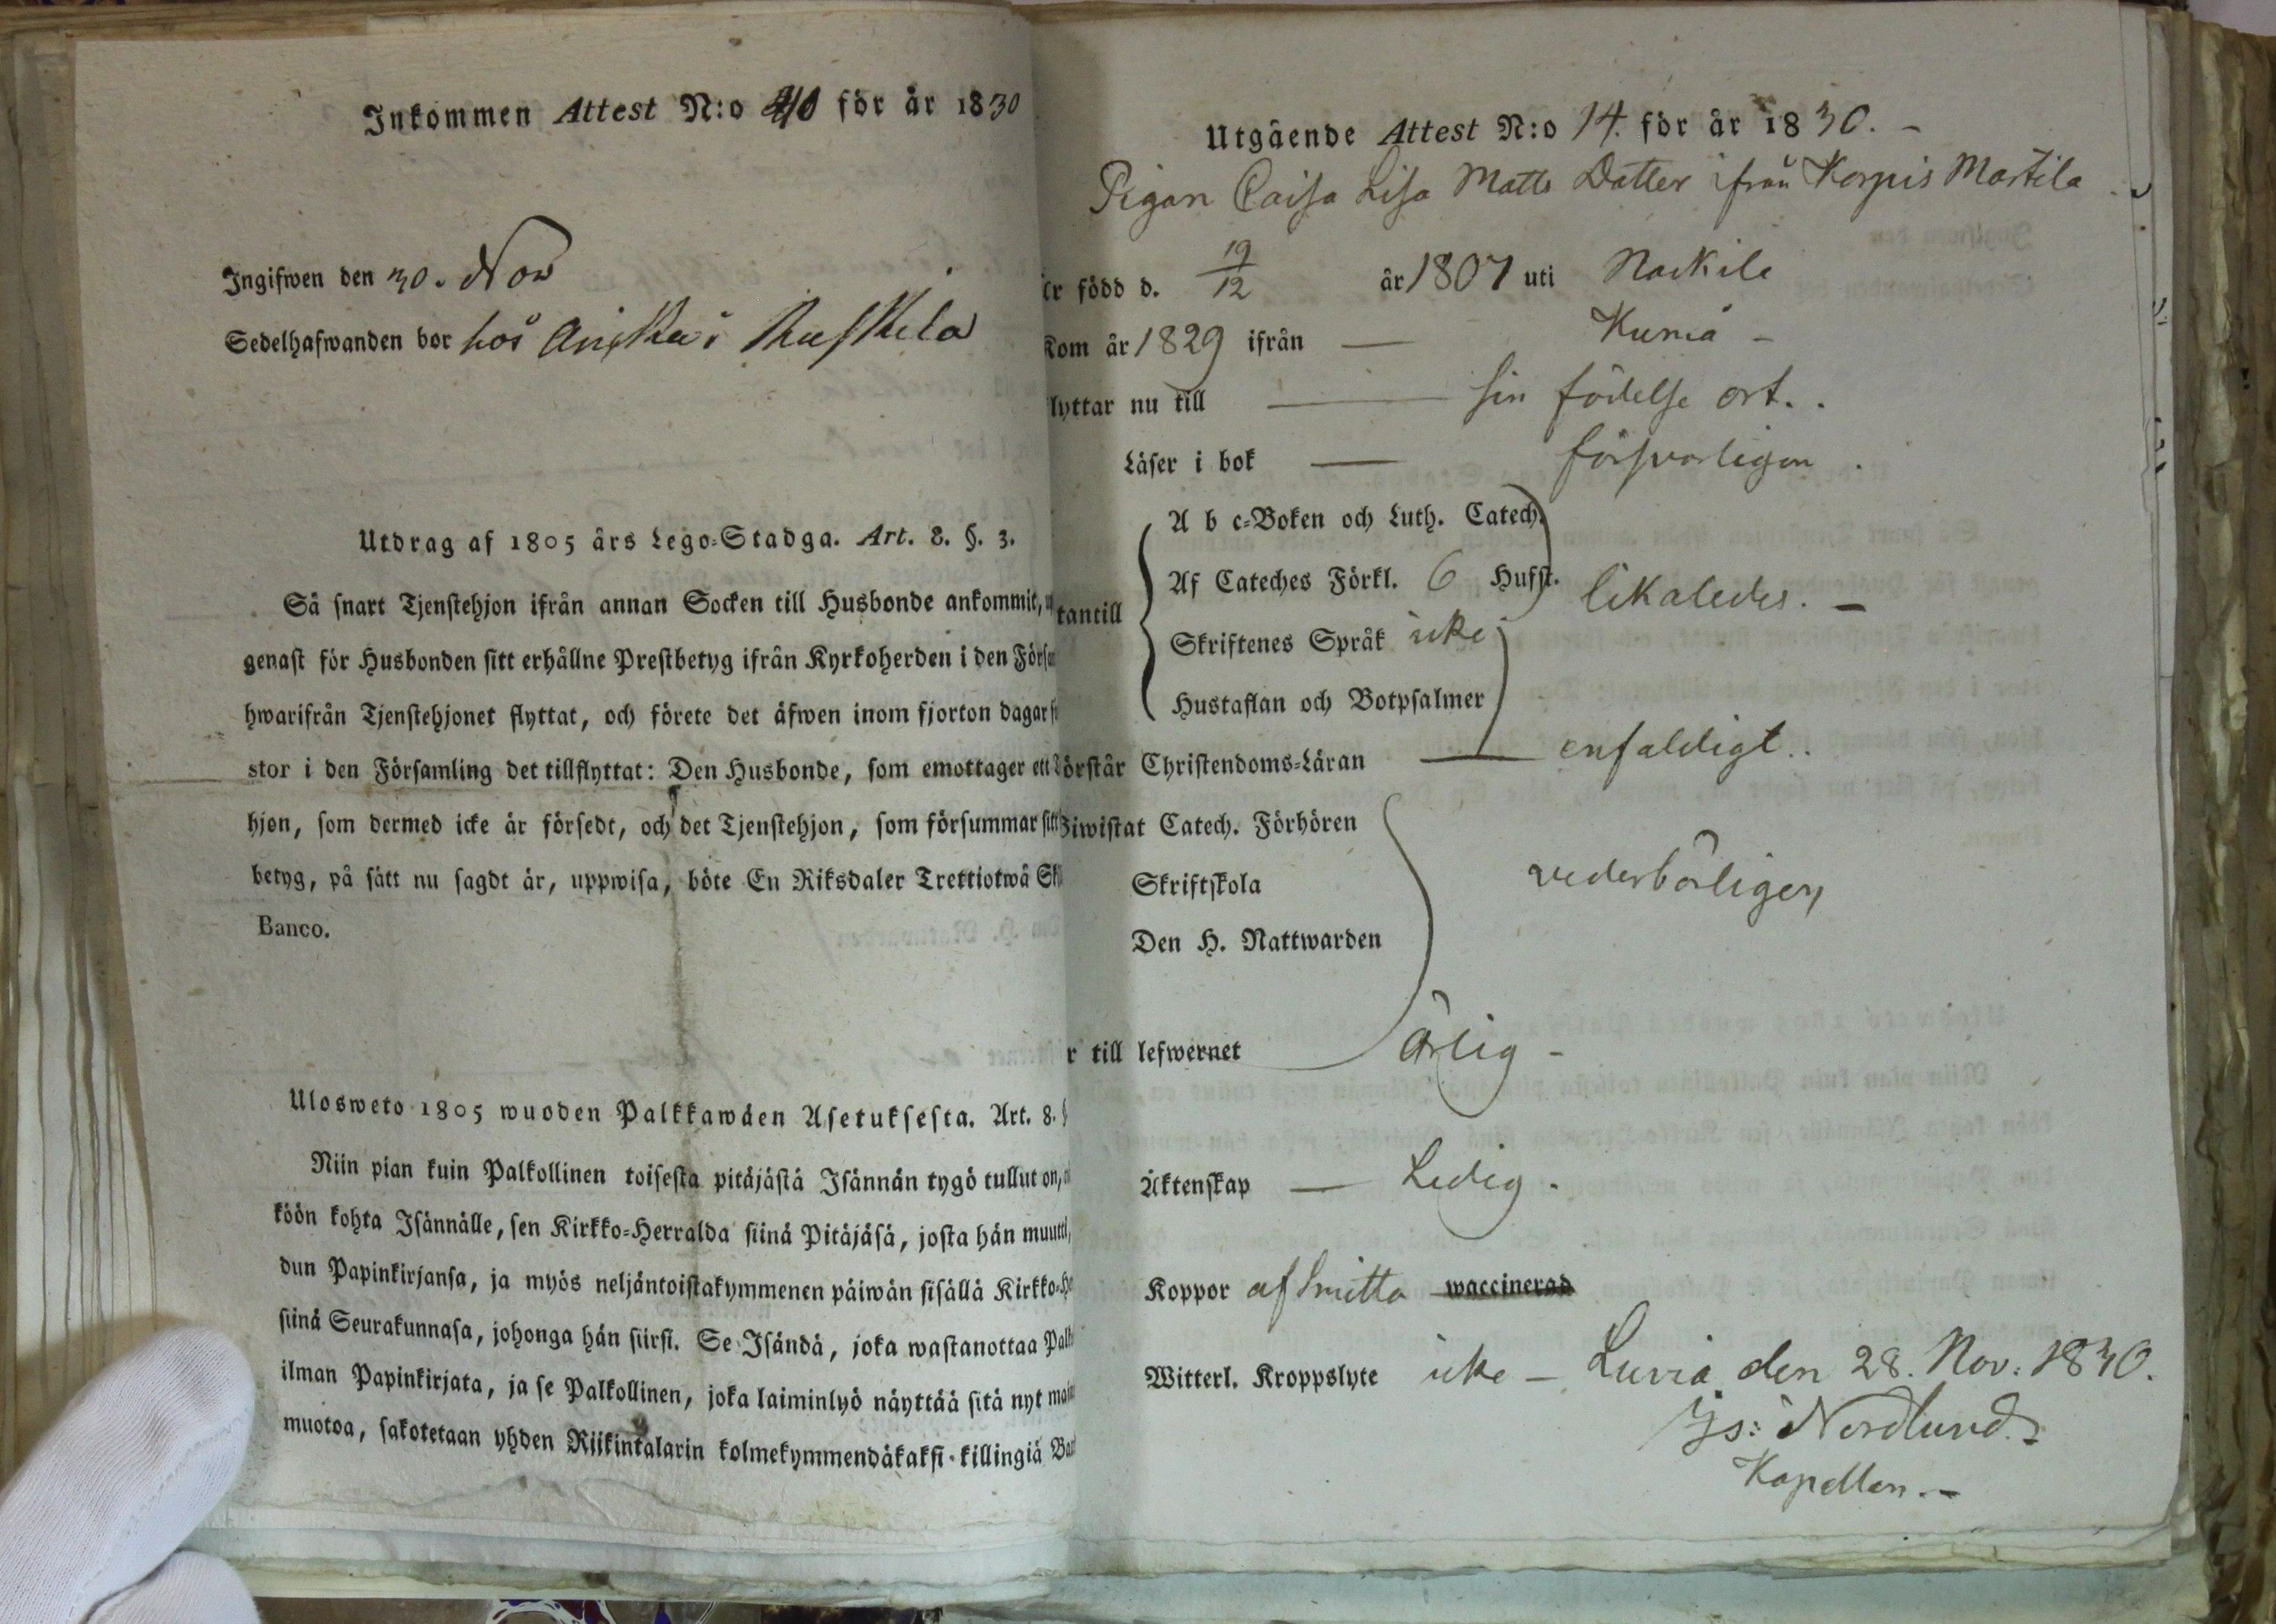 Inkommen Attest N:o för år 1830
Ingifwen den 30. Nov
Sedelhafwanden bor hos
Utdrag af 1805 års Lego-Stadga. Art. 8. §. 3.
Så snart Tjenstehjon ifrån annan Socken till Husbonde ankommit,
genast för Husbonden sitt erhållne Prestbetyg ifrån Kyrkoherden i den Försam
hwarifrån Tjenstehjonet flyttat, och förete det äfwen inom fjorton dagar
stor i den Församling det tillflyttat: Den Husbonde, som emottager ett
hjon, som dermed icke är försedt, och det Tjenstehjon, som försummar sitt
betyg, på sätt nu sagdt är, uppwisa, böte En Riksdaler Trettiotwå Sk
Banco.
Ulosweto 1805 wuoden Palkkawäen Asetuksesta. Art. 8. §
Niin pian kuin Palkollinen toisesta pitäjästä Isännän tygö tullut on,
köön kohta Isännälle, sen Kirkko-Herralda siinä Pitäjäsä, josta hän muutti,
dun Papinkirjansa, ja myös neljäntoistakymmenen päiwän sisällä Kirkko-He
siinä Seurakunnasa, johonga hän siirsi. Se Isändä, joka wastanottaa Palk
ilman Papinkirjata, ja se Palkollinen, joka laiminlyö näyttää sitä nyt main
muotoa, sakotetaan yhden Riikintalarin kolmekymmendäkaksi-killingiä Ban
Utgående Attest N:o 14. för år 1830. -
Pigan Caisa Lisa Matts Datter ifrån Korpis Martila
Är född d. 19/12 år 1807 uti Nackila
Kom år 1829 ifrån —
lyttar nu till — sin födelse ort.
Läser i bok — försvarligen.
A b c-Boken och Luth. Catech.
Af Cateches Förkl. 6 Hufst.
tantill likaledes. —
Skriftenes Språk icke
Hustaflan och Botpsalmer
örstår Christendoms-Läran — enfaldigt.
Biwistat Catech. Förhören
Skriftskola vederbörligen
Den H. Nattwarden
r till lefwernet ärlig -
Äktenskap — Ledig.
Koppor af smitta waccinerad
Witterl. Kroppslyte icke — Luvia den 28. Nov: 1830.
Js: Nordlund.
Kapellan.-